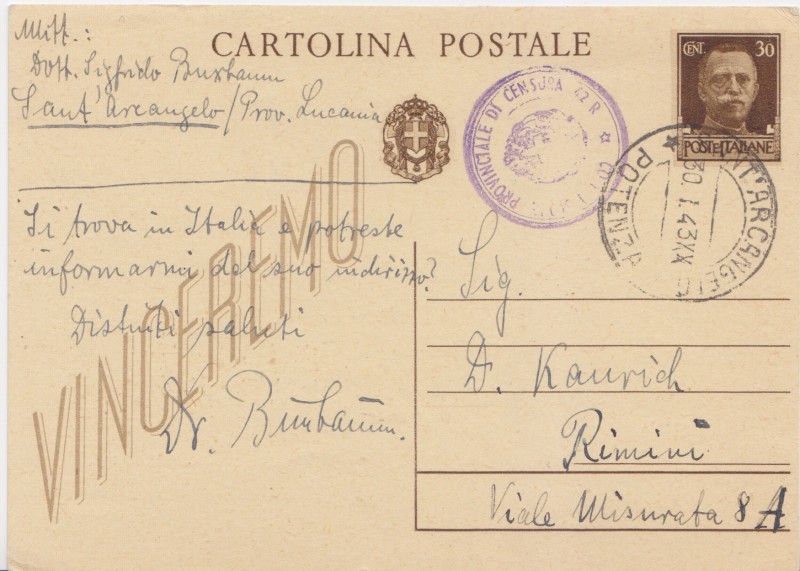 CARTOLINA POSTALE
Mitt.:
Dott. Sigfrido Buxbaum
Sant'Arcangelo / Prov. Lucania
CENT. 30
POSTE ITALIANE
PROVINCIALE DI CENSURA 42 R
SANT'ARCANGELO
POTENZA
30.1.43 XX
VINCEREMO
Si trova in Italia e potreste
informarmi del suo indirizzo?
Distinti saluti
Dr. Buxbaum.
Sig.
D. Kanrich
Rimini
Viale Misurata 8 A